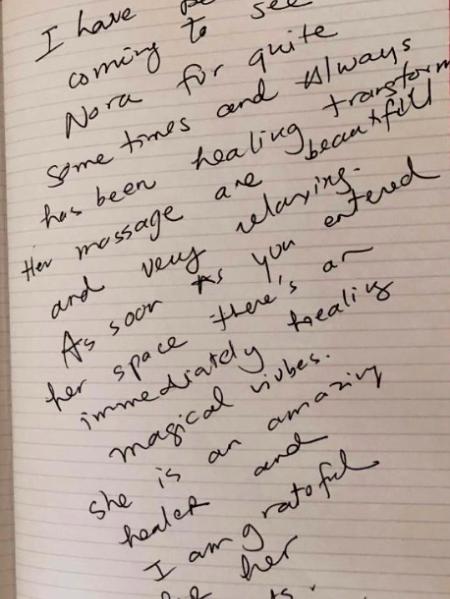 I have
coming to see
Nora for quite
some times and Always
has been healing transform
Her massage are beautifull
and very relaxing.
As soon As you entered
her space there's an
immediatdy healing
magical vivbes.
she is an amazing
healer and
I am gratoful
her